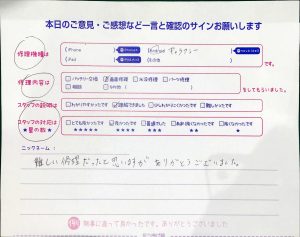 本日のご意見・ご感想など一言と確認のサインお願いします
修理機種は
iPhone
Android
iPad
その他
です。
修理内容は
バッテリー交換 画面修理 水没修理 パーツ修理
相談 その他
をしてもらいました。
スタッフの説明は
わかりやすかったです 納得できました 難しかったです
スタッフの対応は
★星の数★
とても良かったです 良かったです 普通でした 良くなかったです
ニックネーム:
難しい修理だったと思いますが ありがとうございました。
無事に直って良かったです。ありがとうございました